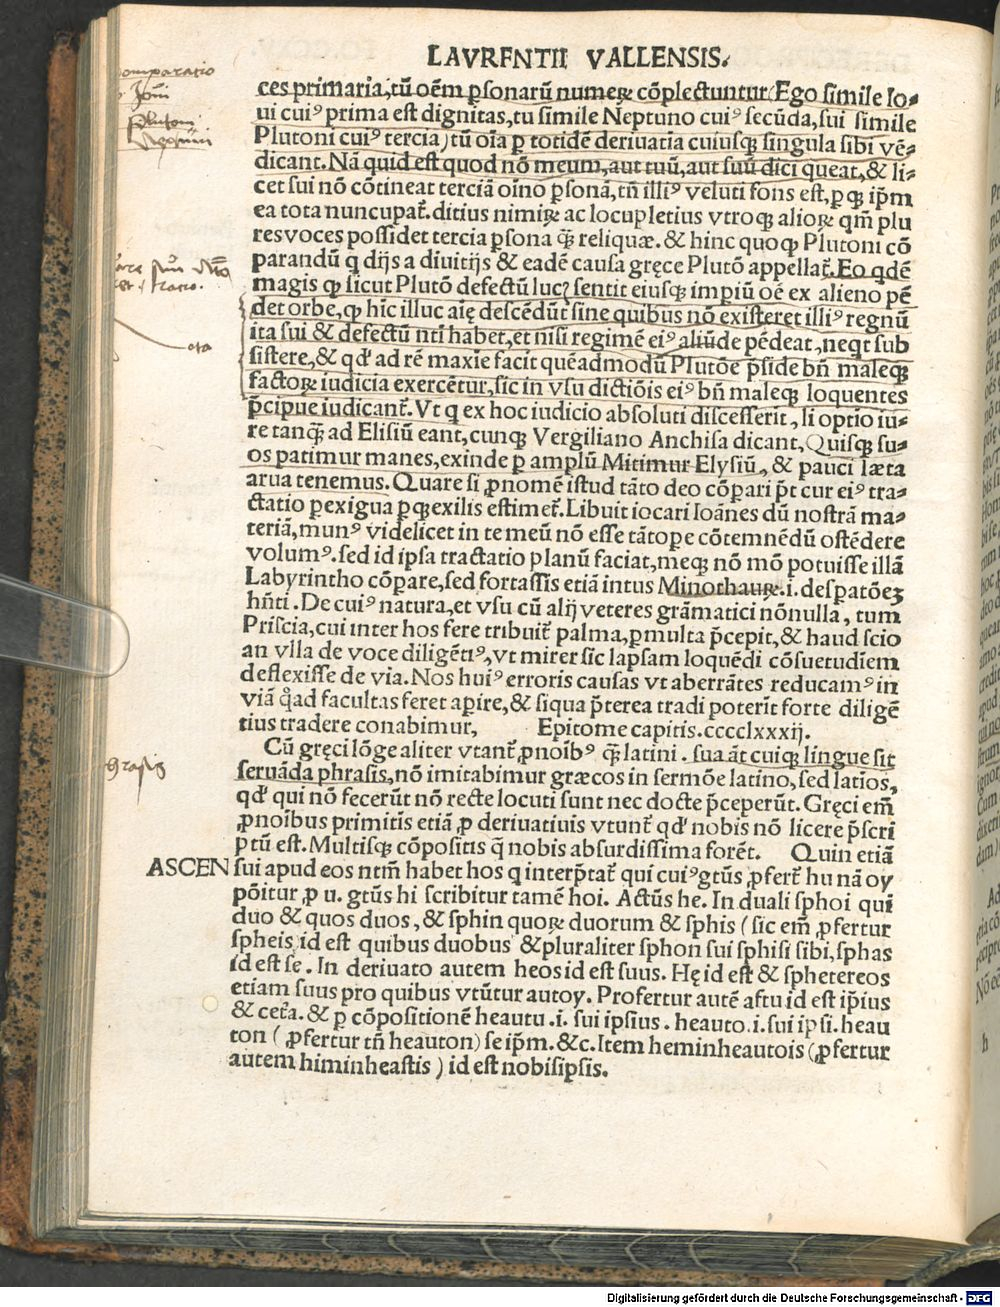 LAVRENTII VALLENSIS.
comparatio
Ioui
Plutoni
Neptuni
ces primaria, tũ oẽm ꝑsonarũ numeꝝ cõplectuntur. Ego simile Io-
ui cuiꝰ prima est dignitas, tu simile Neptuno cuiꝰ secũda, sui simile
Plutoni cuiꝰ tercia) tũ oĩa ꝑ totidẽ deriuatia cuiusqꝫ singula sibi vẽ-
dicant. Nã quid est quod nõ meum, aut tuũ, aut suũ dici queat, & li-
cet sui nõ cõtineat terciã oĩno ꝑsonã, tñ illiꝰ veluti fons est, ꝑ qꝫ ip̃m
ea tota nuncupat᷑. ditius nimiꝝ ac locupletius vtroqꝫ alioꝝ qm̃ plu
res voces possidet tercia ꝑsona q̃ꝫ reliquæ. & hinc quoqꝫ Plutoni cõ
parandũ q dijs a diuitijs & eadẽ causa gręce Plutõ appellat᷑. Eo qdẽ
magis qꝫ sicut Plutõ defectũ lucꝭ sentit eiusqꝫ impiũ oẽ ex alieno pẽ
det orbe, qꝫ hĩc illuc aię descẽdũt sine quibus nõ existeret illiꝰ regnũ
ita sui & defectũ nti habet, et nisi regimẽ eiꝰ aliũde pẽdeat, neqt sub
sistere, & qd' ad rẽ maxie facit quẽadmodũ Plutõe p̃side bñ maleqꝫ
factoꝝ iudicia exercẽtur, sic in vsu dictiõis eiꝰ bñ maleqꝫ loquentes
p̃cipue iudicant᷑. Vt q ex hoc iudicio absoluti discesserit, si optio iu-
re tanqꝫ ad Elisiũ eant, cunqꝫ Vergiliano Anchisa dicant, Quisqꝫ su-
os patimur manes, exinde ꝑ amplũ Mitimur Elysiũ, & pauci læta
arua tenemus. Quare si ꝓnomẽ istud tãto deo cõpari p̃t cur eiꝰ tra-
ctatio ꝑexigua ꝑqꝫ exilis estimet᷑. Libuit iocari Ioãnes dũ nostrã ma-
teriã, munꝰ videlicet in te meũ nõ esse tãtope cõtemnẽdũ ostẽdere
volumꝰ. sed id ipsa tractatio planũ faciat, meqꝫ nõ mõ potuisse illã
Labyrintho cõpare, sed fortassis etiã intus Minothauꝝ .i. despatõeꝫ
hñti. De cuiꝰ natura, et vsu cũ alij veteres grãmatici nõnulla, tum
Priscia, cui inter hos fere tribuit᷑ palma, ꝑmulta p̃cepit, & haud scio
an vlla de voce diligẽtiꝰ, vt mirer sic lapsam loquẽdi cõsuetudĩem
deflexisse de via. Nos huiꝰ erroris causas vt aberrãtes reducamꝰ in
viã q̊ad facultas feret aꝑire, & siqua p̃terea tradi poterit forte diligẽ
tius tradere conabimur, Epitome capitis. cccclxxxij.
Cũ gręci lõge aliter vtant᷑ ꝓnoĩbꝰ q̃ꝫ latini. sua ãt cuiqꝫ lingue sit
seruãda phrasis, nõ imitabimur græcos in sermõe latino, sed latĩos,
qd' qui nõ fecerũt nõ recte locuti sunt nec docte p̃ceperũt. Gręci em̃
ꝓnoĩbus primitĩs etiã ꝓ deriuatiuis vtunt᷑ qd' nobis nõ licere p̃scri
ptũ est. Multisqꝫ cõpositis q̃ nobis absurdissima forẽt. Quin etiã
ASCEN sui apud eos ntm̃ habet hos q interp̃tat᷑ qui cuiꝰ gtũs ꝓfert᷑ hu nã oy
põitur ꝓ u. gtũs hi scribitur tamẽ hoi. Actũs he. In duali sphoi qui
duo & quos duos, & sphin quoꝝ duorum & sphis (sic em̃ ꝓfertur
spheis id est quibus duobus & pluraliter sphon sui sphisi sibi, sphas
id est se. In deriuato autem heos id est suus. Hę id est & sphetereos
etiam suus pro quibus vtũtur autoy. Profertur autẽ aftu id est ip̃ius
& cet᷑a. & ꝑ cõpositionẽ heautu .i. sui ipsius. heauto .i. sui ipsi. heau
ton (ꝓfertur tñ heauton) se ip̃m. &c. Item heminheautois (ꝓfertur
autem himinheastis) id est nobisipsis.
ratio.
ota
phrasis
Digitalisierung gefördert durch die Deutsche Forschungsgemeinschaft - DFG